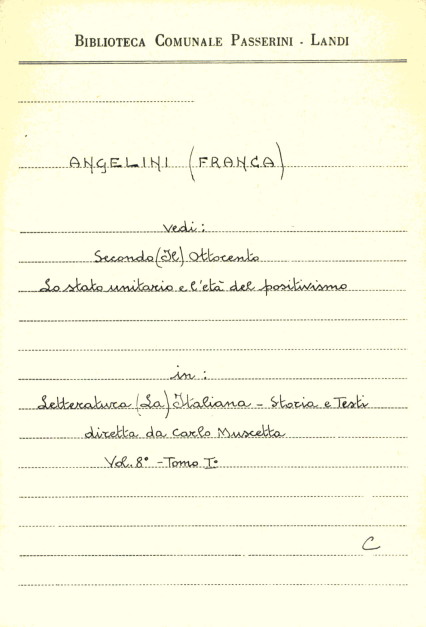 BIBLIOTECA COMUNALE PASSERINI - LANDI
ANGELINI (FRANCA)
vedi:
Secondo (Il) Ottocento
Lo stato unitario e l'età del positivismo
in:
Letteratura (La) Italiana - Storia e Testi
diretta da Carlo Muscetta
Vol. 8° - Tomo I°
C